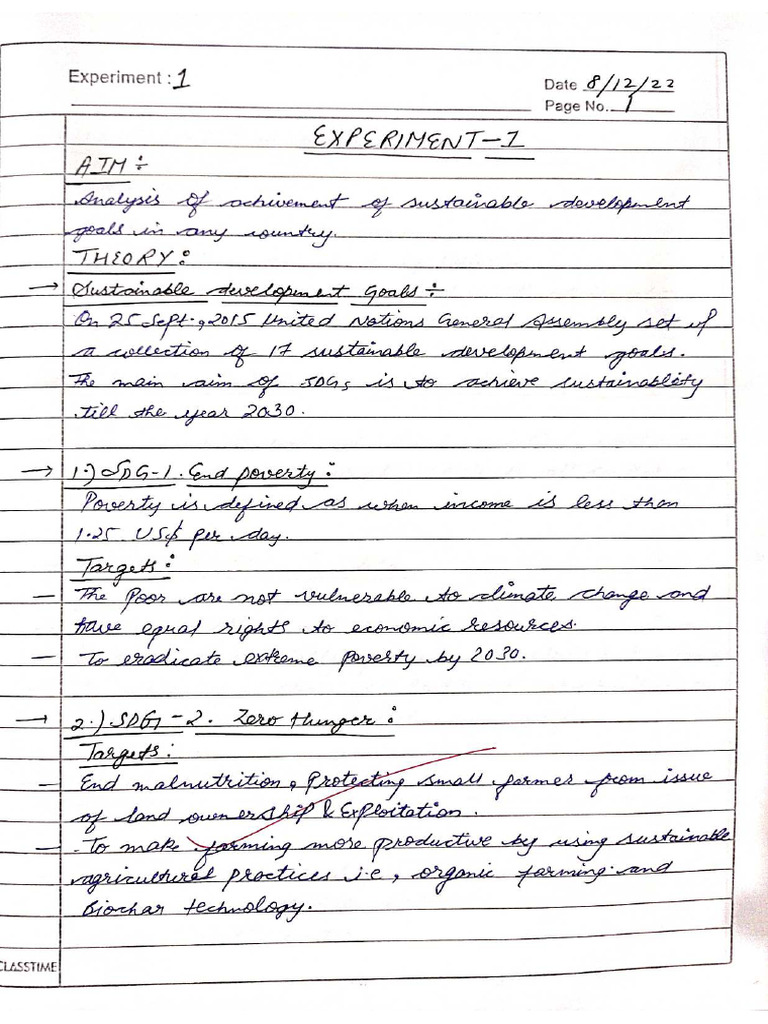 Experiment : 1
Date 8/12/22
Page No. 1
EXPERIMENT-1
AIM :-
Analysis of achivement of sustainable development
goals in any country.
THEORY :
→ Sustainable development Goals :-
On 25 Sept., 2015 United Nations General Assembly set up
a collection of 17 sustainable development goals.
The main aim of SDGs is to achieve sustainablity
till the year 2030.
→ 1.) SDG-1. End poverty :
Poverty is defined as when income is less than
1.25 US$ per day.
Targets :
- The Poor are not vulnerable to climate change and
have equal rights to economic resources.
- To eradicate extreme poverty by 2030.
→ 2.) SDG-2. Zero Hunger :
Targets :
- End malnutrition, Protecting small farmer from issue
of land ownership & Exploitation.
- To make farming more productive by using sustainable
agricultural practices i.e, organic farming and
Biochar technology.
CLASSTIME